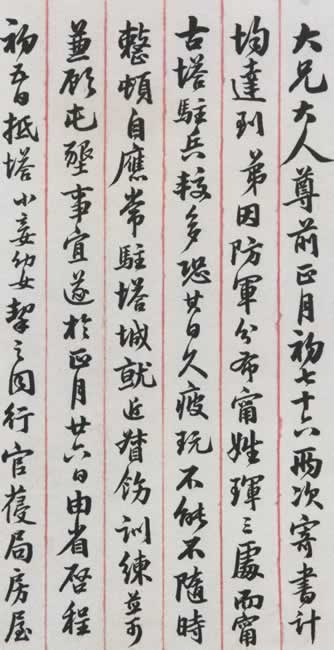 大兄大人尊前正月初七十六兩次寄書計
均達到弟因防軍分布甯姓琿三處而甯
古塔駐兵較多恐廿日久疲玩不能不隨時
整頓自應常駐塔城就近督飭訓練並可
兼顧屯墾事宜遂於正月廿六日由省啓程
初五日抵塔小妾幼女挈之同行官蓡局房屋